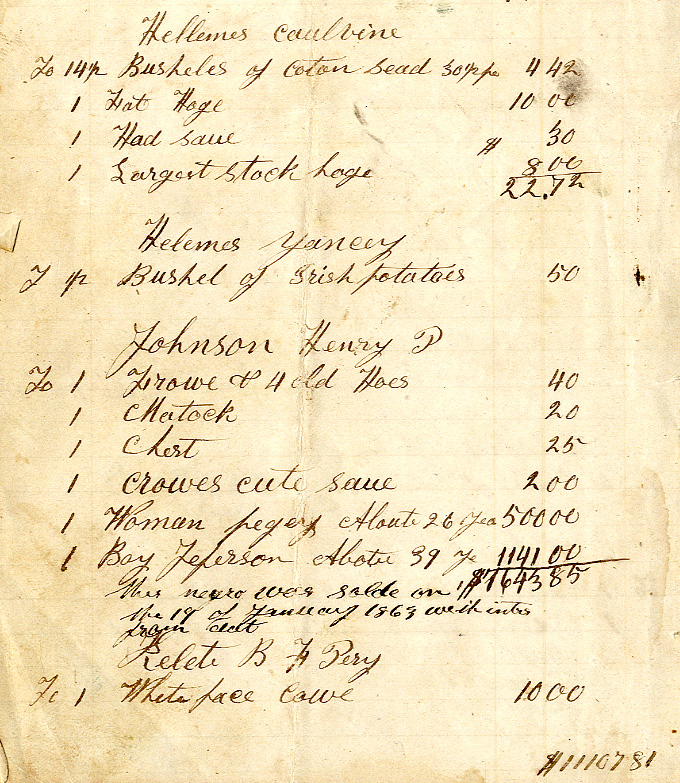 Hellemes Caulvine
To 14 1/2 Busheles of Coton Sead 30 4 42
1 Fat Hoge 10 00
1 Had saue $ 30
1 Largest Stock hoge 8 00
22.72
Helemes Yancey
T 1/2 Bushel of Irish potatoes 50
Johnson Henry P
To 1 Frowe & 4 old Hoes 40
1 Matock 20
1 Chest 25
1 Crowes cute saue 2 00
1 Woman pegey Aboute 26 Yea 500 00
1 Boy Jeferson Aboute 39 Ye 1141 00
this negro was solde on $1643 85
the 19 of January 1863 with inters
from dat
Pelete B F Pery
To 1 White face Cowe 10 00
$11107 81